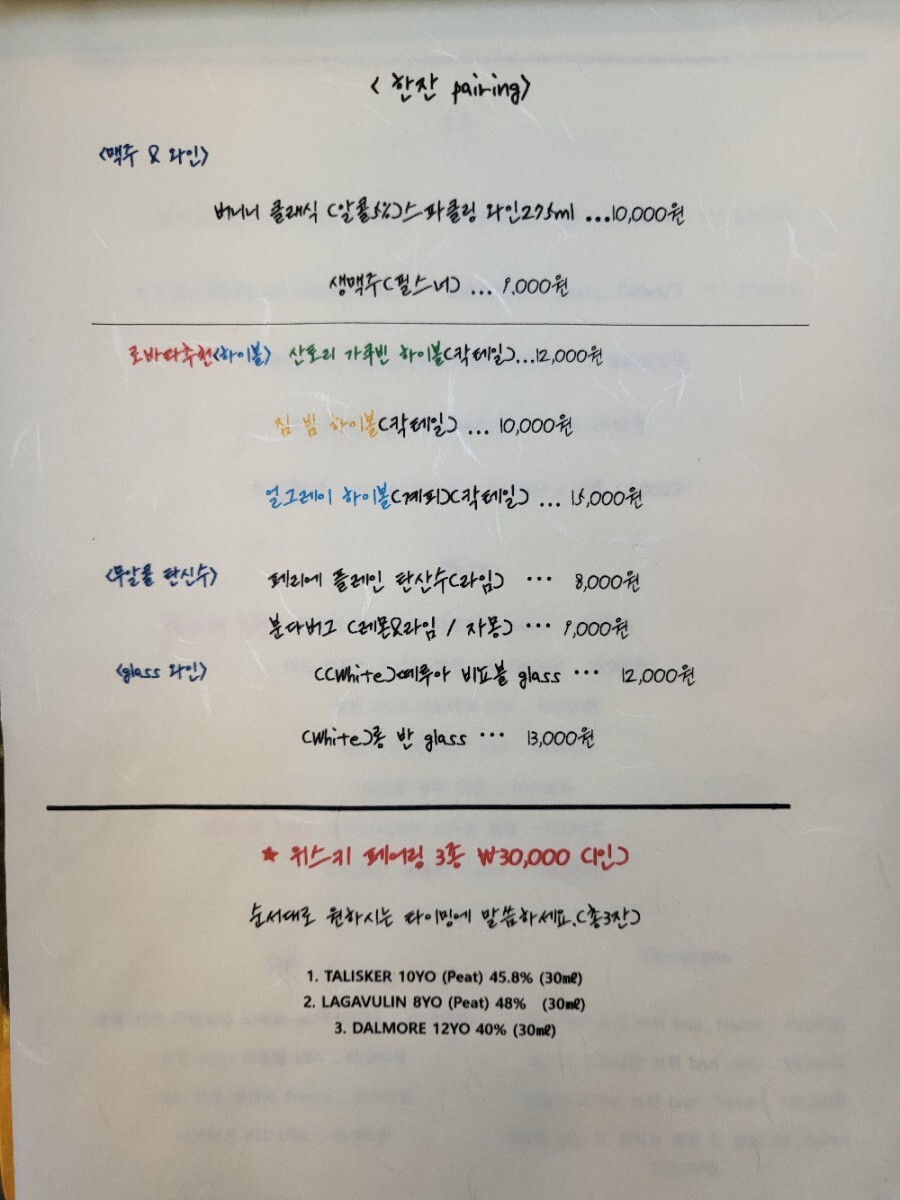 < 한잔 pairing>
<맥주 & 와인>
버니니 클래식 (알콜5%)스파클링 와인275ml ...10,000원
생맥주(필스너) ... 9,000원
로바다추천<하이볼> 산토리 가쿠빈 하이볼(칵테일)...12,000원
짐 빔 하이볼(칵테일) ... 10,000원
얼그레이 하이볼(계피)(칵테일) ... 15,000원
<무알콜 탄신수> 페리에 플레인 탄산수(라임) ... 8,000원
분다버그 (레몬&라임 / 자몽) ... 9,000원
<glass 와인> ((White)떼루아 비표블 glass ... 12,000원
(White)롱 반 glass ... 13,000원
★ 위스키 페어링 3종 ₩30,000 (1인)
순서대로 원하시는 타이밍에 말씀하세요.(총3잔)
1. TALISKER 10YO (Peat) 45.8% (30㎖)
2. LAGAVULIN 8YO (Peat) 48% (30㎖)
3. DALMORE 12YO 40% (30㎖)